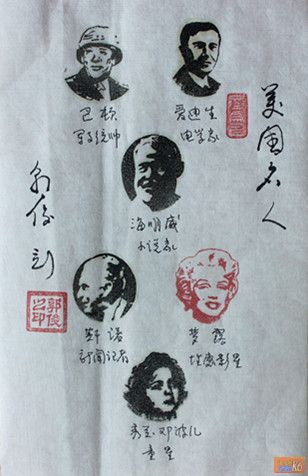 美国名人
巴顿
军事统帅
爱迪生
电学家
海明威
小说家
斯诺
新闻记者
梦露
性感影星
秀兰·邓波儿
童星
郭俊
之印